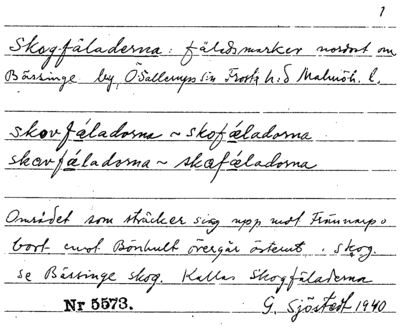 1
Skogfäladerna: fäladsmarker nordost om
Bässinge by, Ö Sallerups sn Frosta h:d Malmöh. l.
skovfáladorna ~ skofáladorna
skavfáladorna ~ skafáladorna
Området som sträcker sig upp mot
bort emot Bönhult övergår österut i skog.
se Bässinge skog. Kallas Skogfäladerna
Nr 5573. G. Sjöstedt 1940